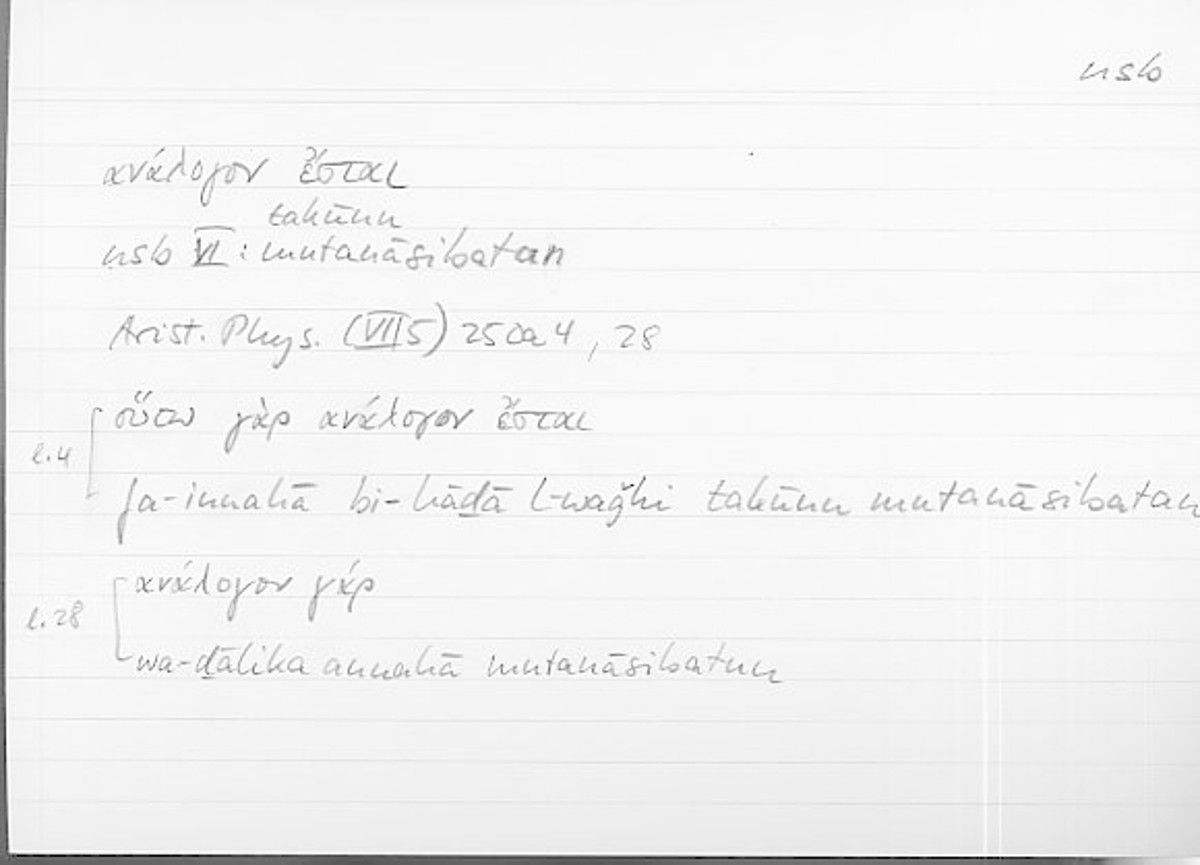 nsb
ανάλογον ἔσται
takūnu
nsb VI : mutanāsibatan
Arist. Phys. (VII 5) 250a4, 28
οὕτω γὰρ ανάλογον ἔσται
l.4
fa-innahā bi-hāḏā l-waǧhi takūnu mutanāsibatan
ανάλογον γάρ
l.28
wa-ḏālika annahā mutanāsibatun